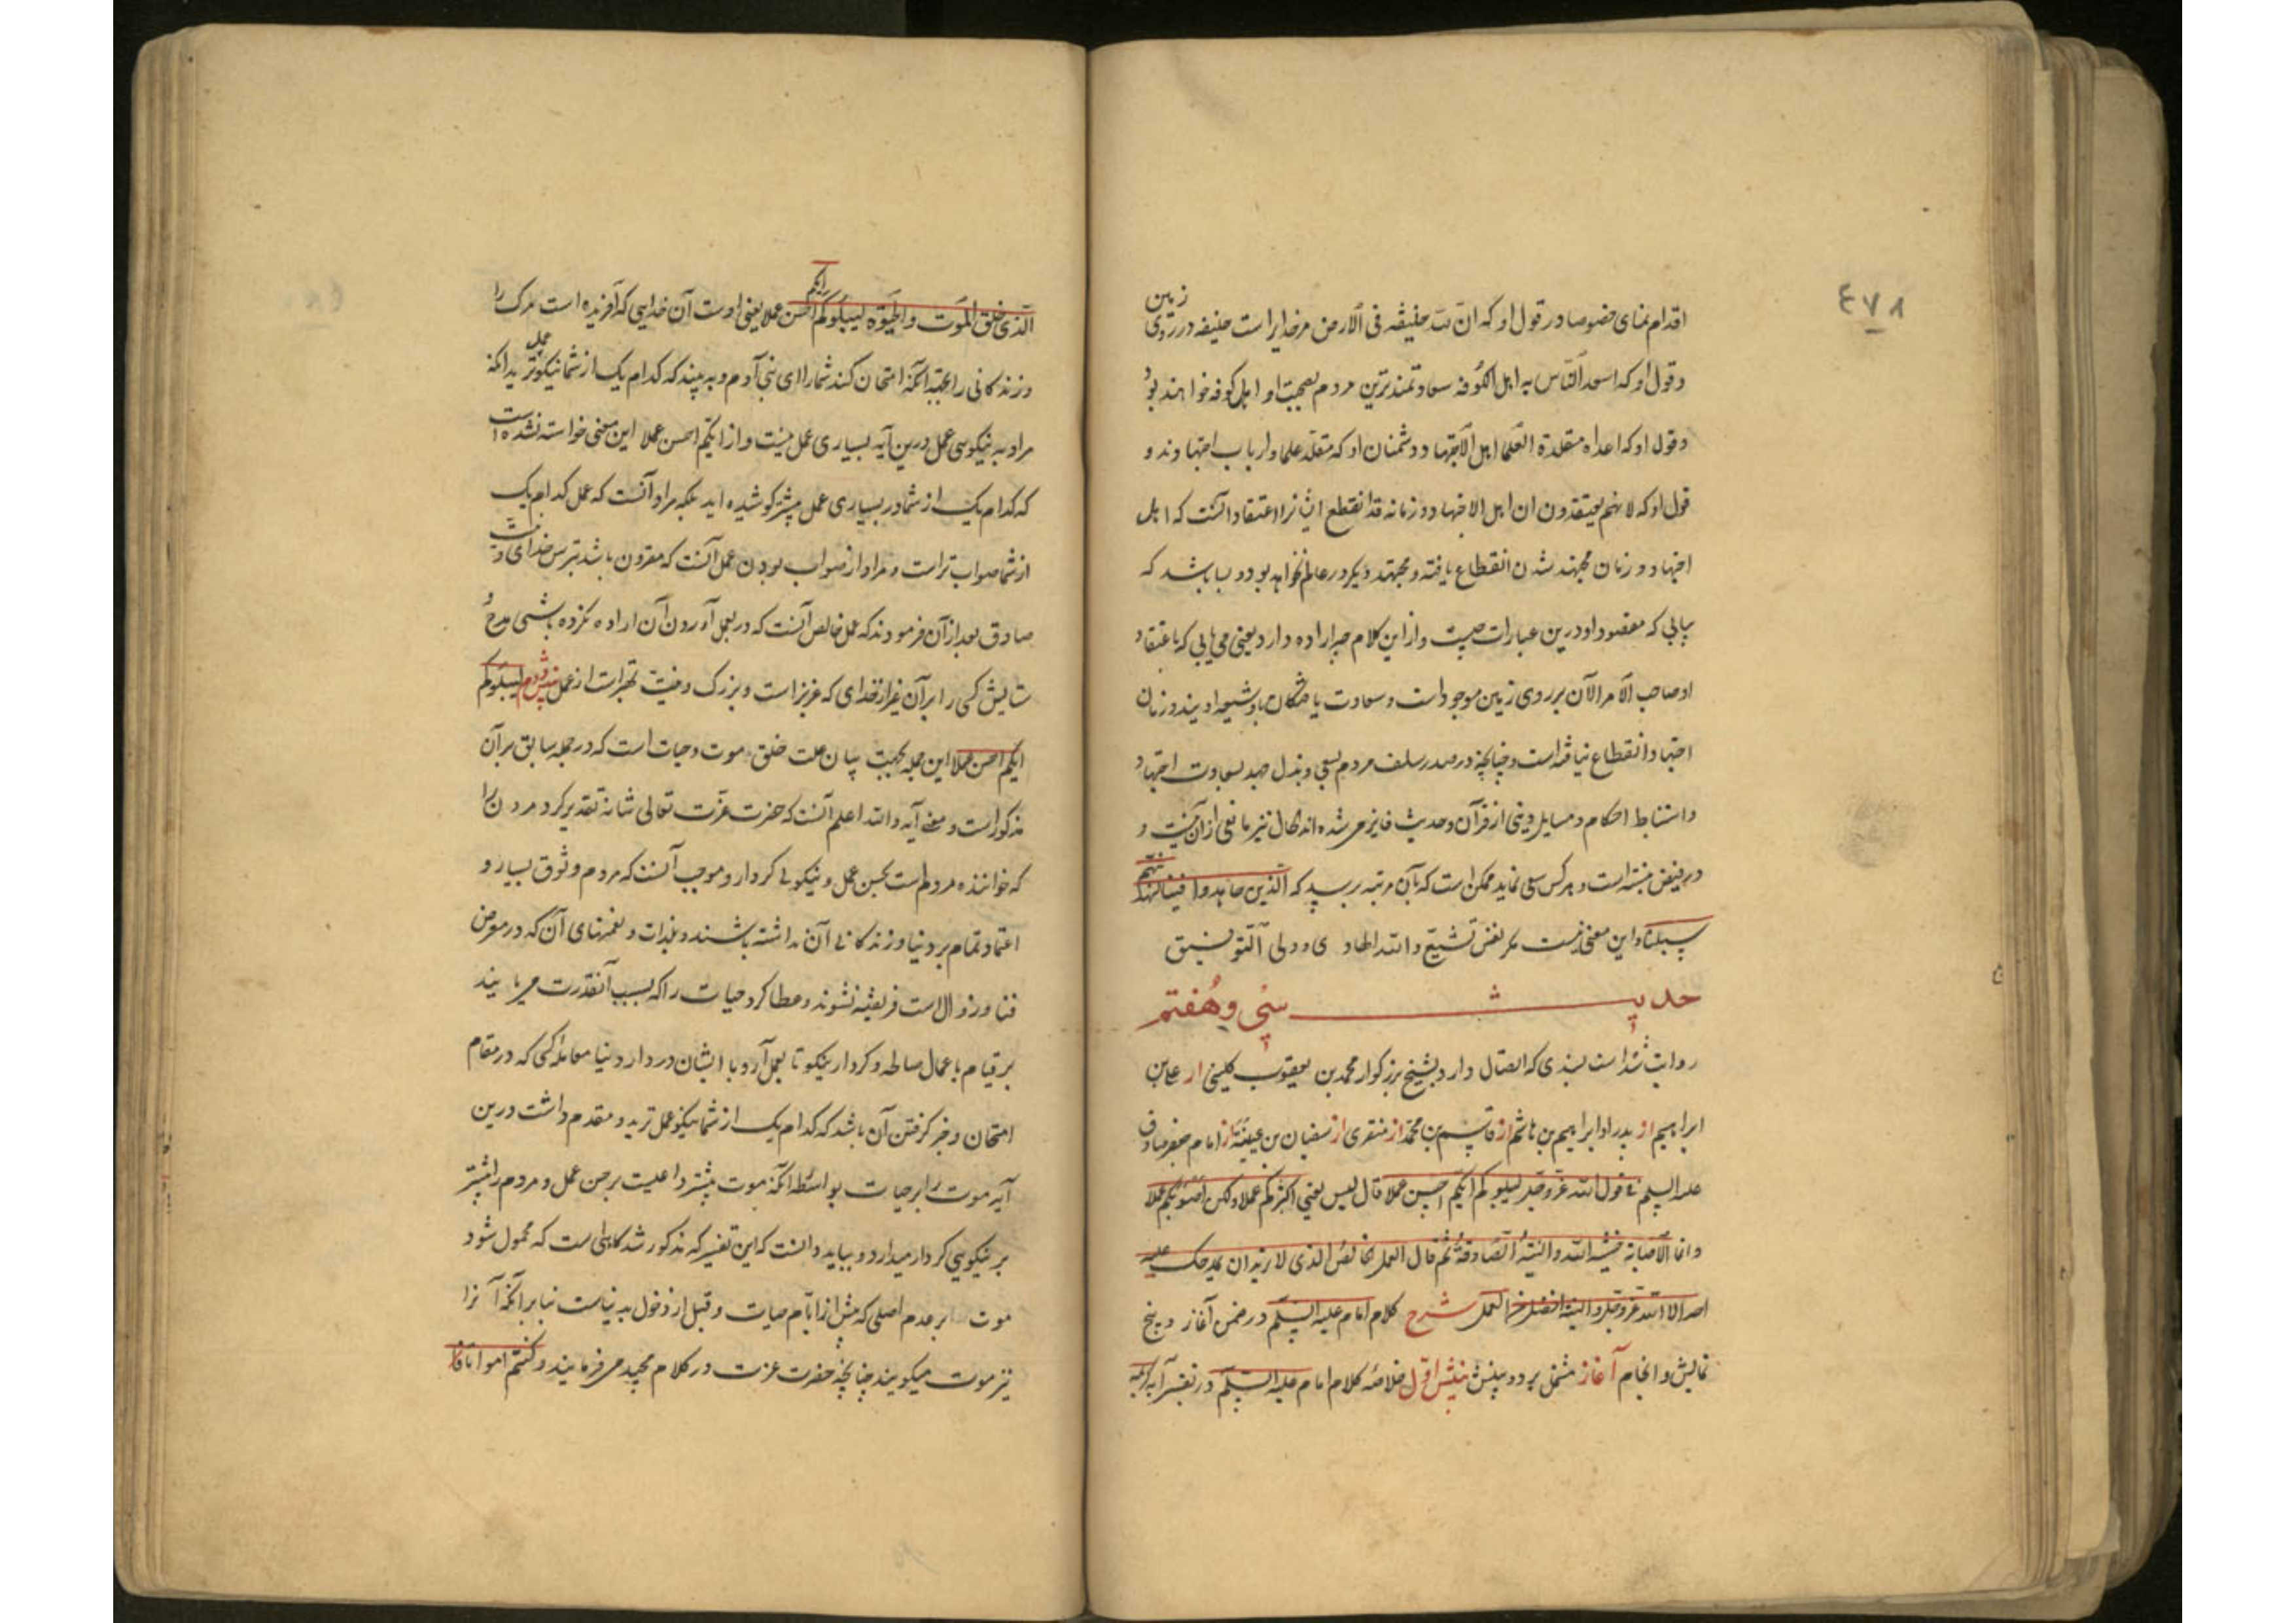 ٤٧٨
اقدام نمای خصوصا در قول او که ان لله خلیفه فی الارض مر خدایراست خلیفه در روی زمین
و قول او که اسعد الناس به اهل الکوفه سعادتمندترین مردم بصحبت او اهل کوفه خواهند بود
و قول او که اعداه مقلدة العلما اهل الاجتهاد و دشمنان او که مقلد علما و ارباب اجتهادند و
قول او که لانهم یعتقدون ان اهل الاجتهاد و زمانه قد انقطع ایشانرا اعتقاد آنست که اهل
اجتهاد و زمان مجتهد شدن انقطاع یافته و مجتهد دیگر در عالم نخواهد بود و بسا باشد که
بیابی که مقصود او درین عبارات چیست و از این کلام چه اراده دارد یعنی می یابی که باعتقاد
او صاحب الامر الآن بر روی زمین موجود است و سعادت یافتگان باو شیعه اویند و زمان
اجتهاد انقطاع نیافته است و چنانچه در صدر سلف مردم بسعی و بذل جهد بسعادت اجتهاد
و استنباط احکام و مسایل دینی از قرآن و حدیث فایز می شده اند الحال نیز مانعی از آن نیست و
در فیض نبسته است و هر کس سعی نماید ممکن است که بآن مرتبه برسد که الذین جاهدوا فینا لنهدینهم
سبلنا و این معنی نیست مگر نفس تشیع و الله الهادی و ولی التوفیق
حدیث سی و هفتم
روایت شده است بسندی که اتصال دارد بشیخ بزرکوار محمد بن یعقوب کلینی از علی بن
ابراهیم از پدر او ابراهیم بن هاشم از قاسم بن محمد از منقری از سفیان بن عیینه از امام جعفر صادق
علیه السلم فی قول الله عز و جل لیبلوکم ایکم احسن عملا قال لیس یعنی اکثرکم عملا ولکن اصوبکم عملا
و انما الاصابه خشیة الله و النیة الصادقة ثم قال العمل الخالص الذی لا ترید ان یحمدک علیه
احد الا الله عز و جل و النیة افضل من العمل شرح کلام امام علیه السلم در ضمن آغاز و پنج
نمایش و انجام آغاز مشتمل بر دو بینش بینش اول خلاصه کلام امام علیه السلم در تفسیر آیه کریمه
الذی خلق الموت و الحیوة لیبلوکم ایکم احسن عملا یعنی اوست آن خدایی که آفریده است مرک را
و زندکانی را بجهة آنکه امتحان کند شما را ای بنی آدم و به بیند که کدام یک از شما نیکو عمل ترید آنکه
مراد به نیکویی عمل درین آیه بسیاری عمل نیست و از ایکم احسن عملا این معنی خواسته نشده است
که کدام یک از شما در بسیاری عمل بیشتر کوشیده اید بلکه مراد آنست که عمل کدام یک
از شما صواب تر است و مراد از صواب بودن عمل آنست که مقرون باشد بترس خدای و نیت
صادق بعد از آن فرمودند که عمل خالص آنست که در بعمل آوردن آن اراده نکرده باشی مدح و
ستایش کسی را بر آن غیر از خدای که عزیز است و بزرک و نیت بهتر است از عمل بینش دوم لیبلوکم
ایکم احسن عملا این جمله بجهت بیان علت خلق موت و حیات است که در جمله سابق بر آن
مذکور است و معنی آیه و الله اعلم آنست که حضرت عزت تعالی شانه تقدیر کرد مردن را
که خواننده مردم است بحسن عمل و نیکویی کردار و موجب آنست که مردم وثوق بسیار و
اعتماد تمام بر دنیا و زندکانی آن نداشته باشند و بلذات و نعمتهای آن که در معرض
فنا و زوال است فریفته نشوند و عطا کرد حیات را که بسبب آن قدرت می یابند
بر قیام باعمال صالحه و کردار نیکو تا بعمل آرد با ایشان در دار دنیا معامله کسی که در مقام
امتحان و خبر کرفتن آن باشد که کدام یک از شما نیکو عمل ترید و مقدم داشت درین
آیه موت را بر حیات بواسطه آنکه موت بیشتر داعیست بر حسن عمل و مردم را بیشتر
بر نیکویی کردار میدارد و بباید دانست که این تفسیر که مذکور شد کاهی است که محمول شود
موت بر عدم اصلی که پیش از ایام حیات و قبل از دخول بدنیاست بنابر آنکه آنرا
نیز موت میکویند چنانچه حضرت عزت در کلام مجید می فرمایند و کنتم امواتا فا